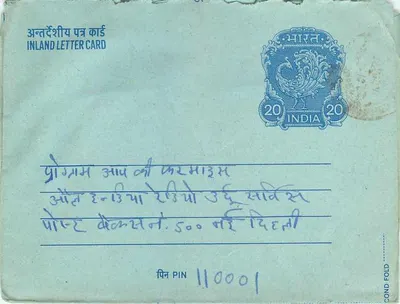 अन्तर्देशीय पत्र कार्ड
INLAND LETTER CARD
भारत
20 20
INDIA
प्रोग्राम आप की फरमाइस
ऑल इन्डिया रेडियो उर्दू सर्विस
पोस्ट बॉक्स नं. ५०० नई दिल्ली
पिन PIN 110001
COND FOLD